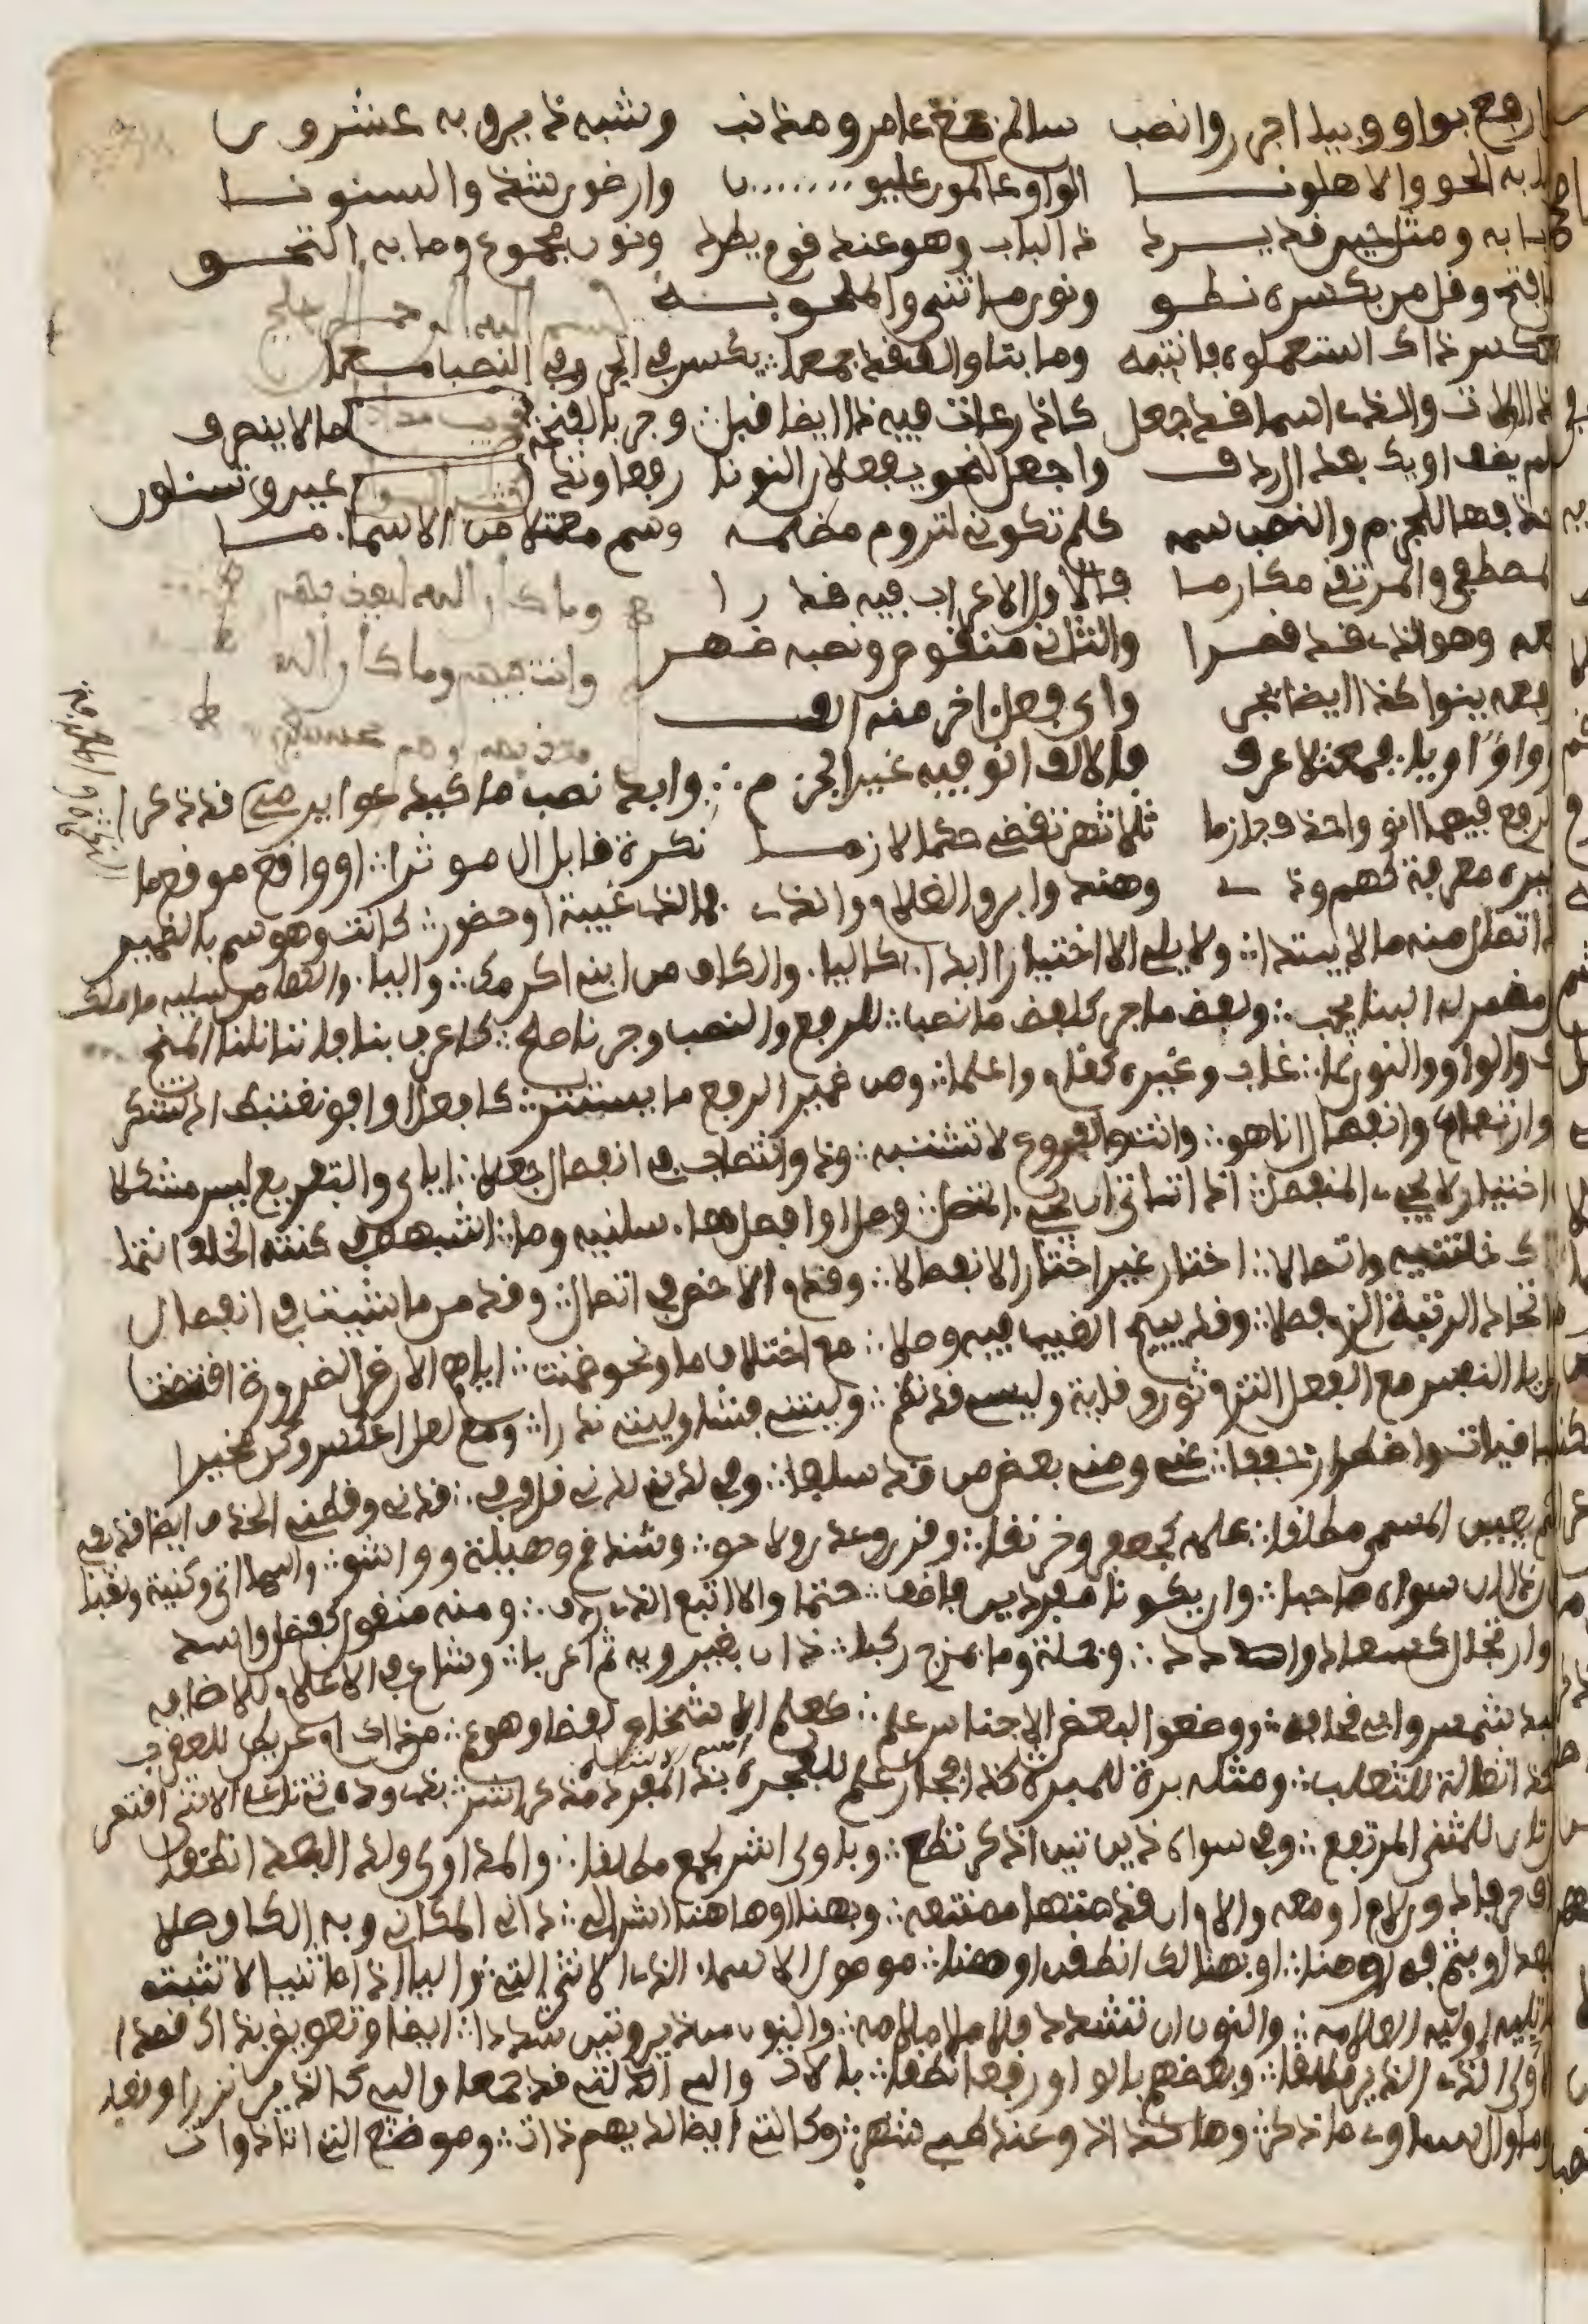 ارفع بواو وبيا اجرر وانصب سالم جمع عامر ومذنب وشبه ذين وبه عشرون
بابه الحق والاهلونا الوا وعالمون عليونا وارضون شذ والسنونا
بابه ومثل حين قد يرد ذا الباب وهو عند قوم يطرد ونون مجموع وما به التحق
فافتح وقل من بكسره نطق ونون ما ثني والملحق به
بعكس ذاك استعملوه فانتبه وما بتا والف قد جمعا يكسر في الجر وفي النصب معا
كذا اولات والذي اسما قد جعل كاذرعات فيه ذا ايضا قبل وجر بالفتحة ما لا ينصرف
لم يضف او يك بعد ال ردف واجعل لنحو يفعلان النونا رفعا وتدعين وتسئلون
حذفها للجزم والنصب سمه كلم تكوني لترومي مظلمه وسم معتلا من الاسماء ما
المصطفى والمرتقي مكارما فالاول الاعراب فيه قدرا
جميعه وهو الذي قد قصرا والثان منقوص ونصبه ظهر
ورفعه ينوى كذا ايضا يجر واي فعل اخر منه الف
او واو او ياء فمعتلا عرف فالالف انو فيه غير الجزم وابد نصب ما كيدعو يرمي
والرفع فيهما انو واحذف جازما ثلاثهن تقض حكما لازما نكرة قابل ال موثرا او واقع موقع ما قد ذكرا
وغيره معرفة كهم وذي وهند وابني والغلام والذي فما لذي غيبة او حضور كانت وهو سم بالضمير
وذو اتصال منه ما لا يبتدا ولا يلي الا اختيارا ابدا كاليا والكاف من ابني اكرمك واليا والها من سليه ما ملك
وكل مضمر له البنا يجب ولفظ ما جر كلفظ ما نصب للرفع والنصب وجر نا صلح كاعرف بنا فاننا نلنا المنح
والف والواو والنون لما غاب وغيره كقاما واعلما ومن ضمير الرفع ما يستتر كافعل اوافق نغتبط اذ تشكر
وذو ارتفاع وانفصال انا هو وانت والفروع لا تشتبه وذو انتصاب في انفصال جعلا اياي والتفريع ليس مشكلا
وفي اختيار لا يجيء المنفصل اذا تاتى ان يجيء المتصل وصل او افصل هاء سلنيه وما اشبهه في كنته الخلف انتمى
كذاك خلتنيه واتصالا اختار غيري اختار الانفصالا وقدم الاخص في اتصال وقدمن ما شئت في انفصال
وفي اتحاد الرتبة الزم فصلا وقد يبيح الغيب فيه وصلا مع اختلاف ما ونحو ضمنت اياهم الارض الضرورة اقتضت
وقبل يا النفس مع الفعل التزم نون وقاية وليسي قد نظم وليتني فشا وليتي ندرا ومع لعل اعكس وكن مخيرا
في الباقيات واضطرارا خففا مني وعني بعض من قد سلفا وفي لدني لدني قل وفي قدني وقطني الحذف ايضا قد يفي
اسم يعين المسمى مطلقا علمه كجعفر وخرنقا وقرن وعدن ولاحق وشذقم وهيلة وواشق واسما اتى وكنية ولقبا
واخرن ذا ان سواه صحبا وان يكونا مفردين فاضف حتما والا اتبع الذي ردف ومنه منقول كفضل واسد
وذو ارتجال كسعاد وادد وجملة وما بمزج ركبا ذا ان بغير ويه تم اعربا وشاع في الاعلام ذو الاضافه
كعبد شمس وابي قحافه ووضعوا لبعض الاجناس علم كعلم الاشخاص لفظا وهو عم من ذاك ام عريط للعقرب
وهكذا ثعالة للثعلب ومثله برة للمبره كذا فجار علم للفجره بذا لمفرد مذكر اشر بذي وذه تي تا على الانثى اقتصر
وذان تان للمثنى المرتفع وفي سواه ذين تين اذكر تطع وباولى اشر لجمع مطلقا والمد اولى ولدى البعد انطقا
بالكاف حرفا دون لام او معه واللام ان قدمت ها ممتنعه وبهنا او هاهنا اشر الى داني المكان وبه الكاف صلا
في البعد او بثم فه او هنا او بهنالك انطقن او هنا موصول الاسماء الذي الانثى التي واليا اذا ما ثنيا لا تثبت
بل ما تليه اوله العلامه والنون ان تشدد فلا ملامه والنون من ذين وتين شددا ايضا وتعويض بذاك قصدا
جمع الذي الالى الذين مطلقا وبعضهم بالواو رفعا نطقا باللات واللاء التي قد جمعا واللاء كالذين نزرا وقعا
ومن وما وال تساوي ما ذكر وهكذا ذو عند طيئ شهر وكالتي ايضا لديهم ذات وموضع اللاتي اتى ذوات